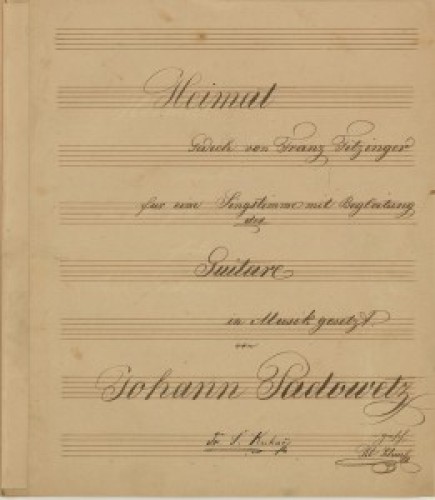 Heimat
Gedich von Franz Fitzinger
für eine Singstimme mit Begleitung
der
Guitare
in Musik gesetzt
von
Johann Padowetz
Fr. S. Kuhač